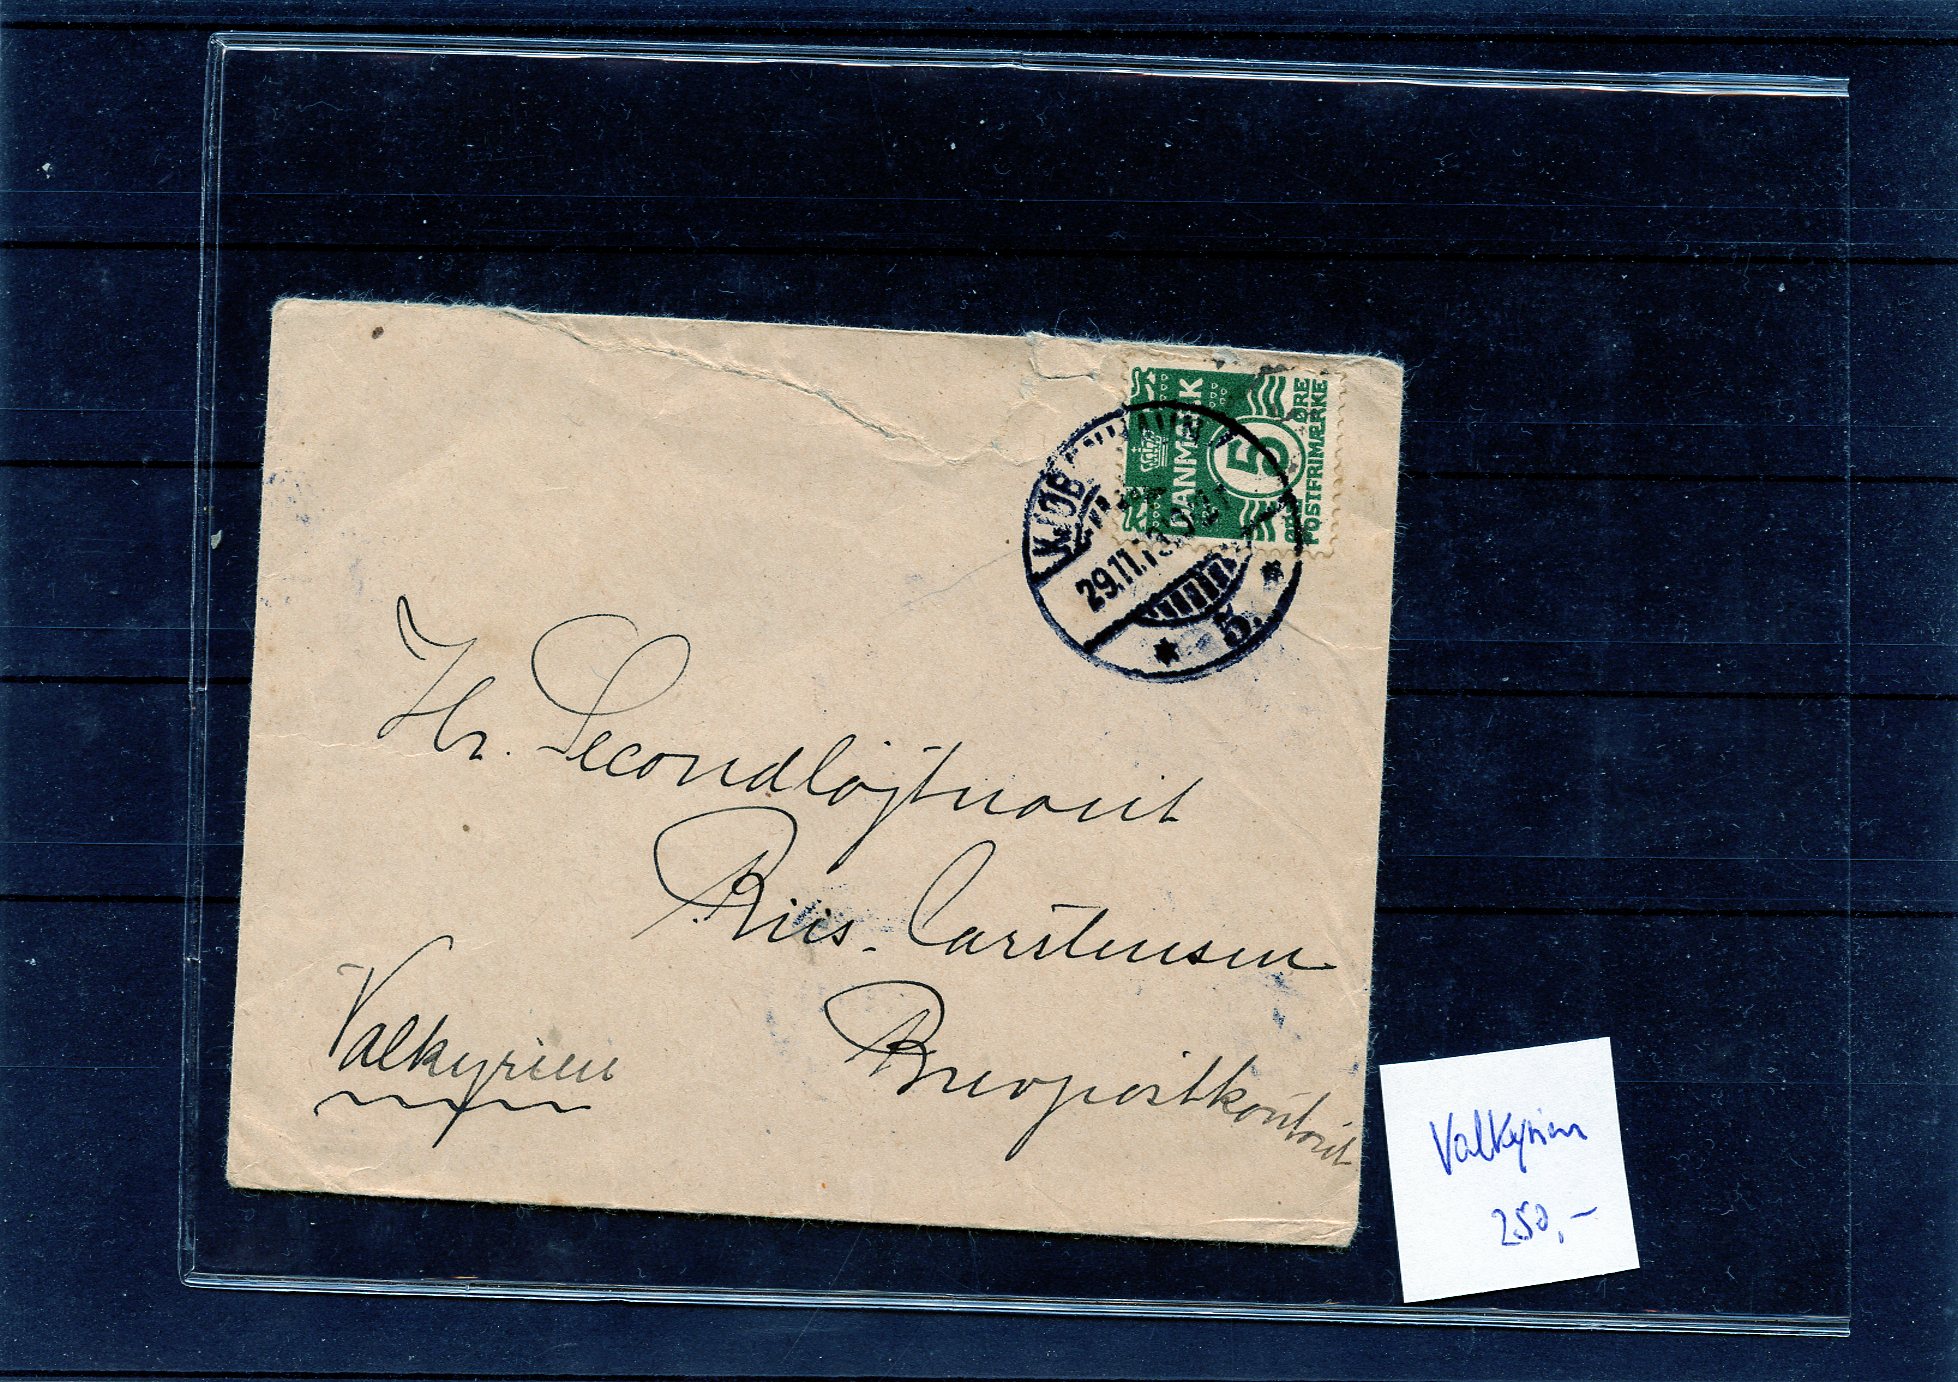 DANMARK
5
ØRE
POSTFRIMÆRKE
KJØBENHAVN
29.11.13
5.
Hr. Secondløjtnant
Riis-Carstensen
Valkyrien
Brevpostkontoret
Valkyrien
250,-